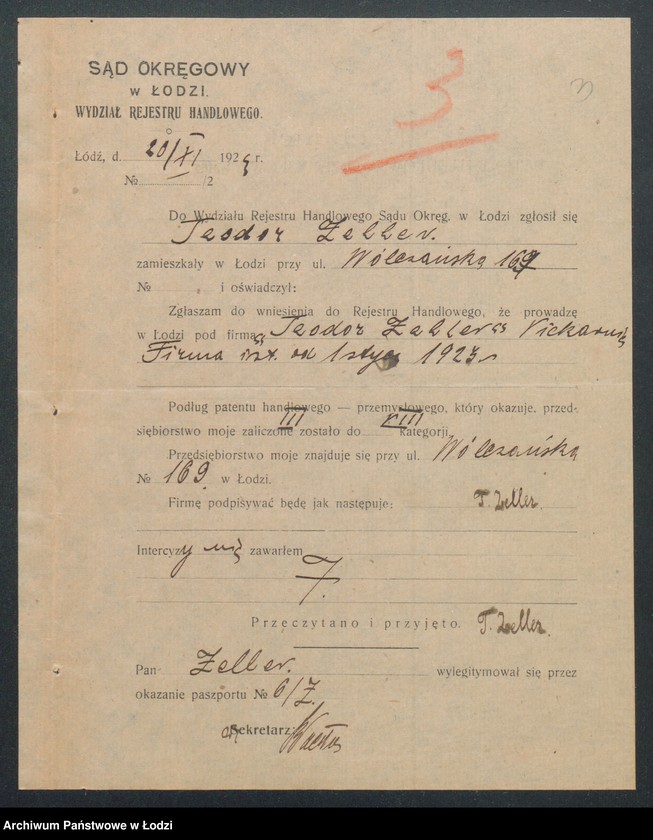 SĄD OKRĘGOWY
w ŁODZI.
WYDZIAŁ REJESTRU HANDLOWEGO.
3
Łódź, d. 20/XI 1923 r.
№ /2
Do Wydziału Rejestru Handlowego Sądu Okręg. w Łodzi zgłosił się
Teodor Zeller.
zamieszkały w Łodzi przy ul. Wólczańska 169
№ i oświadczył:
Zgłaszam do wniesienia do Rejestru Handlowego, że prowadzę
w Łodzi pod firmą Teodor Zeller
Firma ist. od 1 stycz 1923 r
Podług patentu handlowego — przemysłowego, który okazuje, przed-
III VIII
siębiorstwo moje zaliczone zostało do kategorji.
Przedsiębiorstwo moje znajduje się przy ul. Wólczańska
№ 169 w Łodzi.
Firmę podpisywać będę jak następuje: T. Zeller
Intercyzy nie zawarłem
Przeczytano i przyjęto. T. Zeller.
Pan Zeller. wylegitymował się przez
okazanie paszportu № 6/Z.
Sekretarz:
Archiwum Państwowe w Łodzi